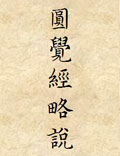 圓覺經略說